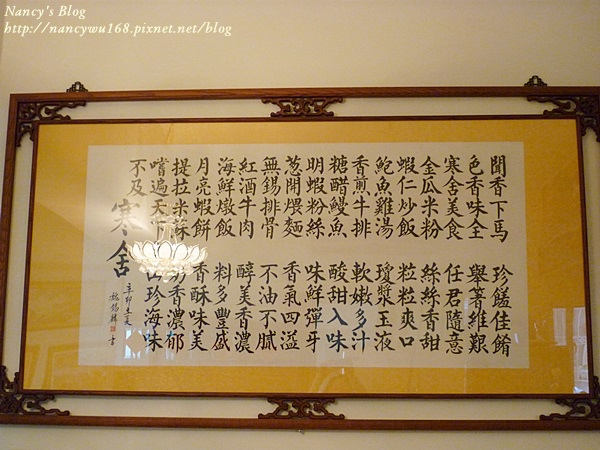 Nancy's Blog
http://nancywu168.pixnet.net/blog
聞香下馬 珍饈佳餚
色香味全 舉箸維艱
寒舍美食 任君隨意
金瓜米粉 絲絲香甜
蝦仁炒飯 粒粒爽口
鮑魚雞湯 瓊漿玉液
香煎牛排 軟嫩多汁
糖醋鰻魚 酸甜入味
明蝦粉絲 味鮮彈牙
葱開煨麵 香氣四溢
無錫排骨 不油不膩
紅酒牛肉 醇美香濃
海鮮燉飯 料多豐盛
月亮蝦餅 香酥味美
提拉米蘇 奶香濃郁
嚐遍天下 山珍海味
不及寒舍
辛卯立夏
書